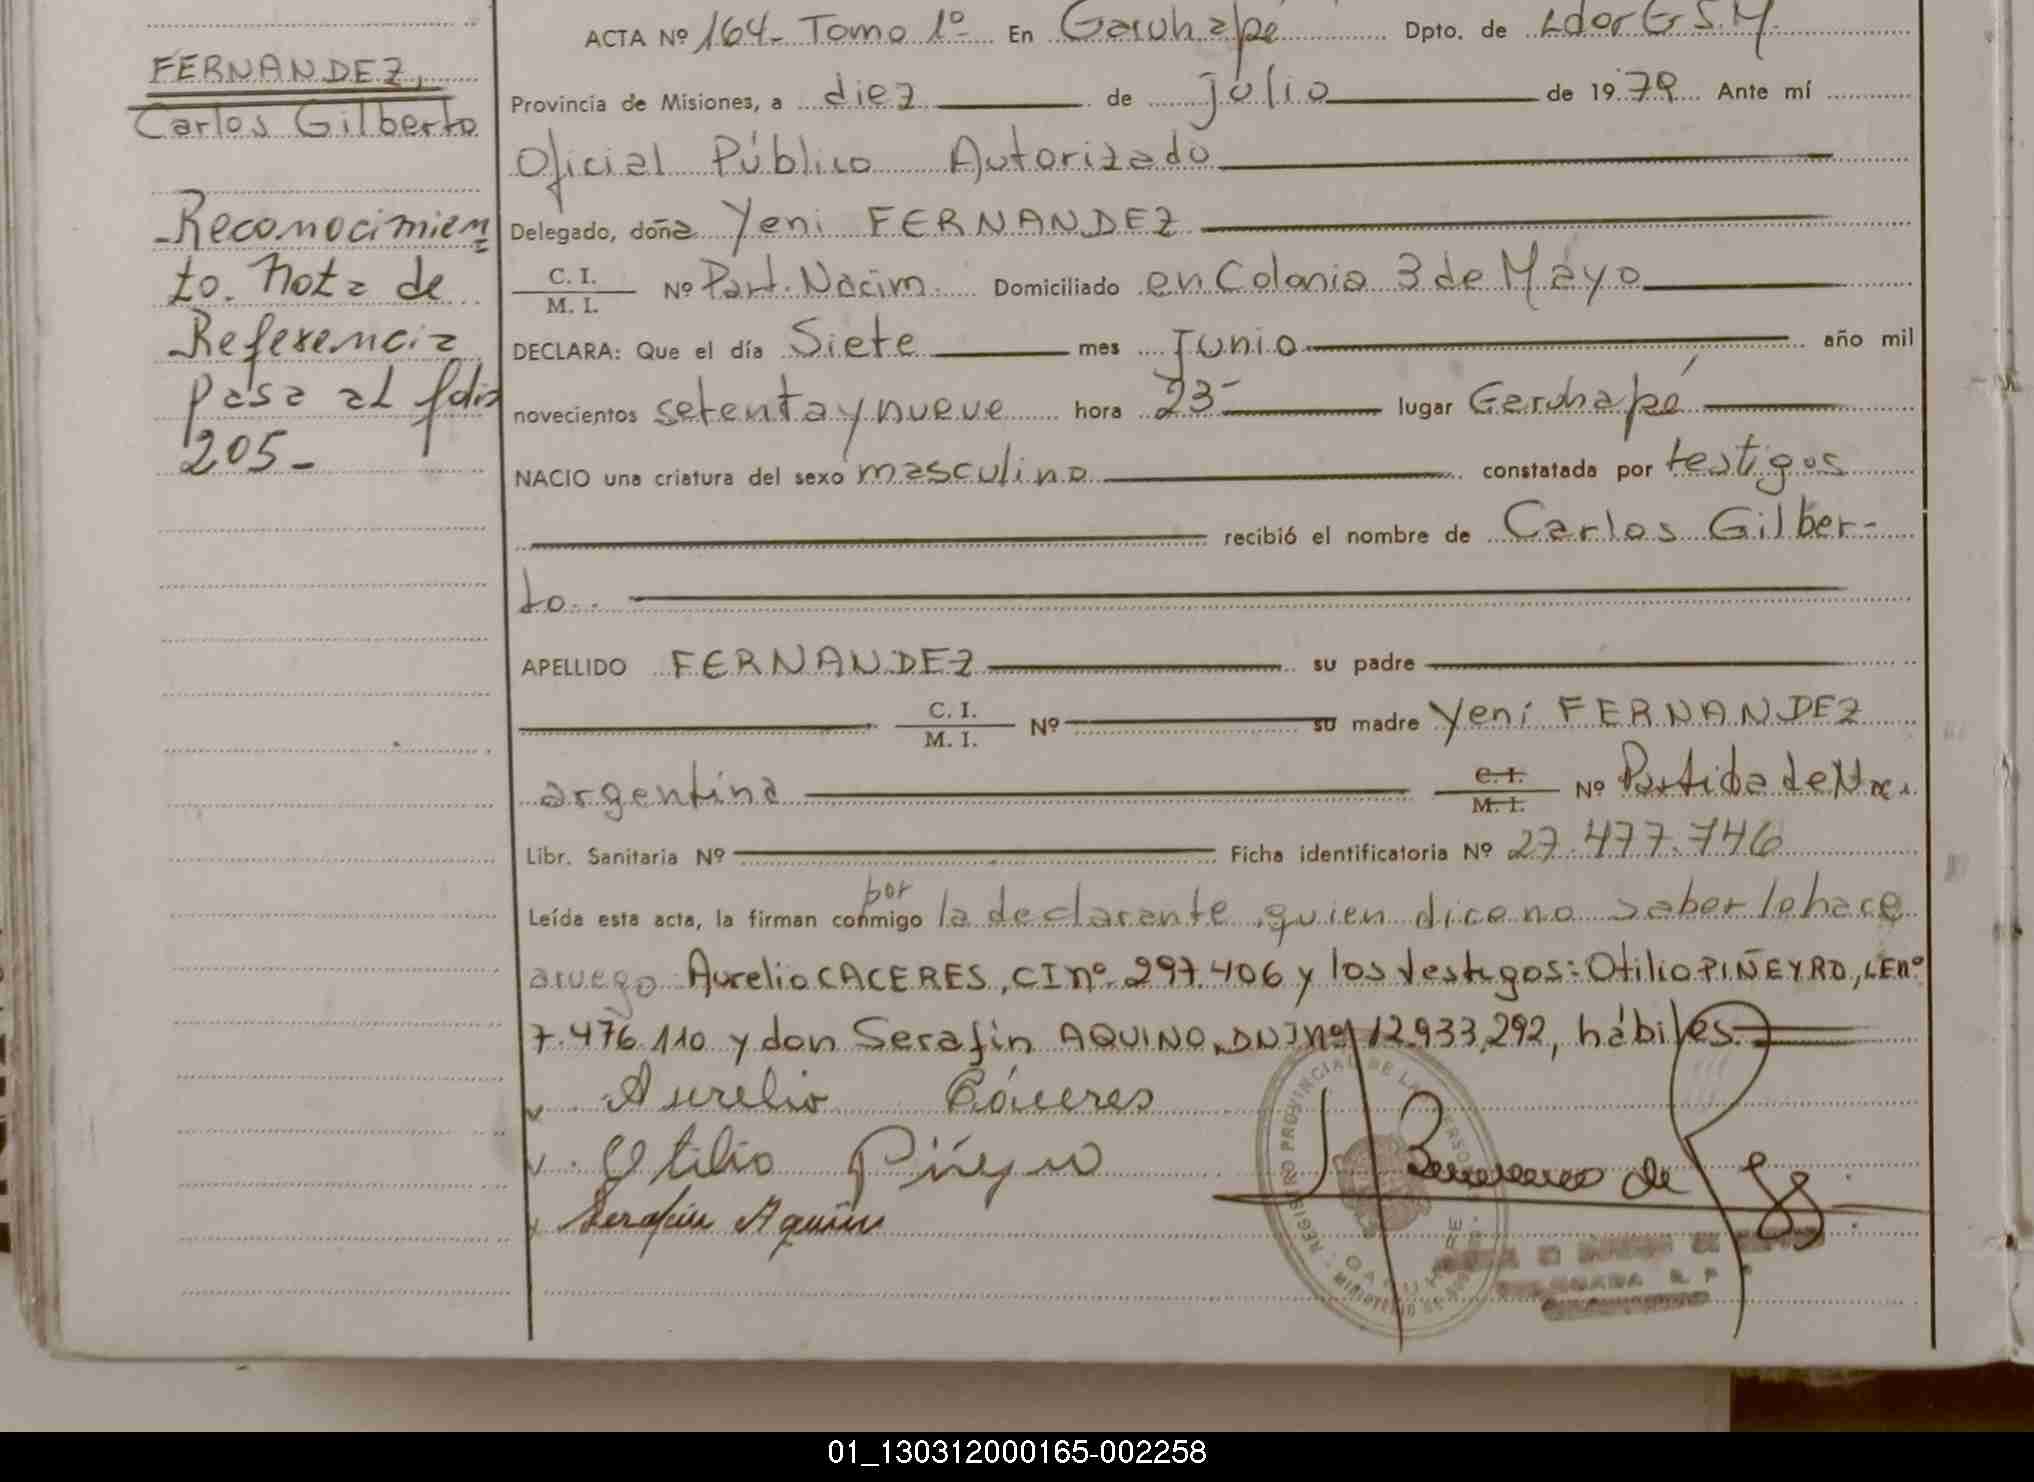 ACTA Nº 164- Tomo 1º En Garuhapé Dpto. de Ldor G.S.M.
FERNANDEZ,
Carlos Gilberto
Provincia de Misiones, a diez de julio de 1979 Ante mí
Oficial Público Autorizado
-Reconocimien
to. Nota de
Referencia
pasa al folio
205-
Delegado, doña Yeni FERNANDEZ
C. I.
M. I. Nº Part. Nacim. Domiciliado en Colonia 3 de Mayo
DECLARA: Que el día Siete mes Junio año mil
novecientos setenta y nueve hora 23- lugar Garuhapé
NACIO una criatura del sexo masculino constatada por testigos
recibió el nombre de Carlos Gilber-
to.
APELLIDO FERNANDEZ su padre
C. I.
M. I. Nº su madre Yeni FERNANDEZ
argentina C. I.
M. I. Nº Partida de Naci.
Libr. Sanitaria Nº Ficha identificatoria Nº 27.477.746
por
Leída esta acta, la firman conmigo la declarante, quien dice no saber lo hace
a ruego Aurelio CACERES, CI nº 297.406 y los testigos: Otilio PIÑEYRO, LE nº
7.476.110 y don Serafin AQUINO, DNI nº 12.933,292, hábiles.
Aurelio Cáceres
Otilio Piñeyro
Serafin Aquino
REGISTRO PROVINCIAL DE LAS PERSONAS